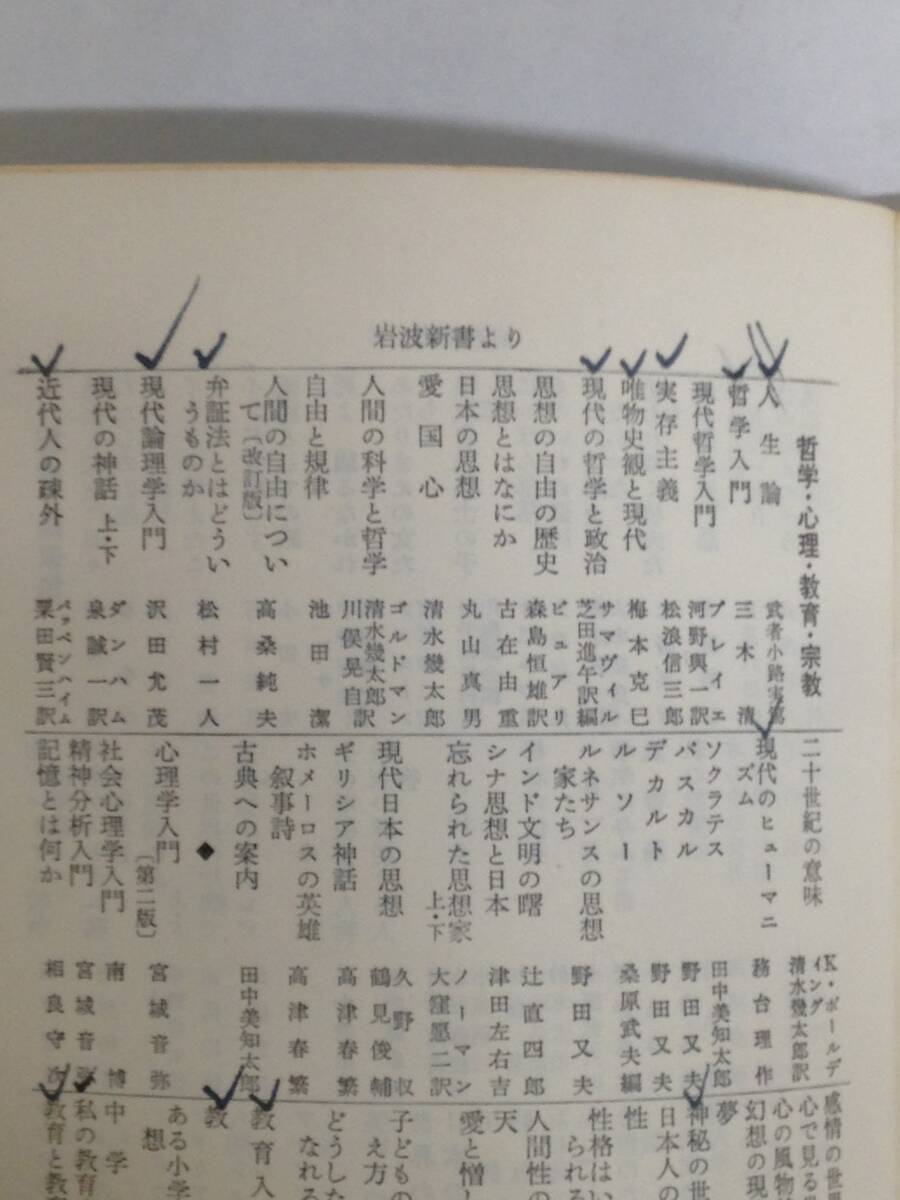 岩波新書より
哲学・心理・教育・宗教
人生論 武者小路実篤
哲学入門 三木清
現代哲学入門 ブレイエ 河野興一訳
実存主義 松浪信三郎
唯物史観と現代 梅本克巳
現代の哲学と政治 サマヴィル 芝田進午訳編
思想の自由の歴史 ビュアリ 森島恒雄訳
思想とはなにか 古在由重
日本の思想 丸山真男
愛国心 清水幾太郎
人間の科学と哲学 ゴルドマン 清水幾太郎 川俣晃自訳
自由と規律 池田潔
人間の自由につい
て〔改訂版〕 高桑純夫
弁証法とはどうい
うものか 松村一人
現代論理学入門 沢田允茂
現代の神話 上・下 ダンハム 泉誠一訳
近代人の疎外 パッペンハイム 粟田賢三訳
二十世紀の意味 K・ボールディング 清水幾太郎訳
現代のヒューマニ
ズム 務台理作
ソクラテス 田中美知太郎
パスカル 野田又夫
デカルト 野田又夫
ルソー 桑原武夫編
ルネサンスの思想
家たち 野田又夫
インド文明の曙 辻直四郎
シナ思想と日本 津田左右吉
忘れられた思想家 上・下 ノーマン 大窪愿二訳
現代日本の思想 久野収 鶴見俊輔
ギリシア神話 高津春繁
ホメーロスの英雄
叙事詩 高津春繁
古典への案内 田中美知太郎
◆
心理学入門〔第二版〕 宮城音弥
社会心理学入門 南博
精神分析入門 宮城音弥
記憶とは何か 相良守次
感情の世
心で見る
心の風物
幻想の現
夢
神秘の世
日本人の
性
性格はい
られる
人間性の
天
愛と憎し
子どもの
え方
どうした
なれる
教育入
教
ある小学
中学
私の教育
教育と教